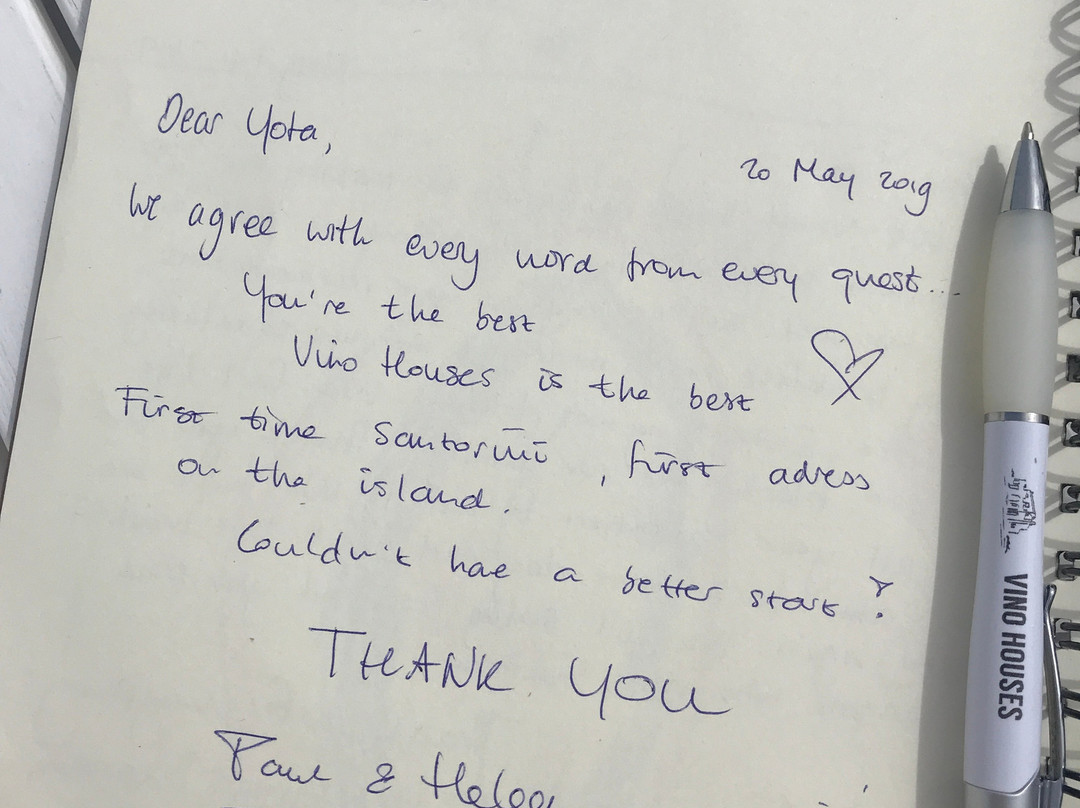 Dear Yota,
20 May 2019
We agree with every word from every guest...
You're the best
Vino Houses is the best
First time Santorini, first adress
on the island.
Couldn't hae a better start!
THANK YOU
Paul &
VINO HOUSES